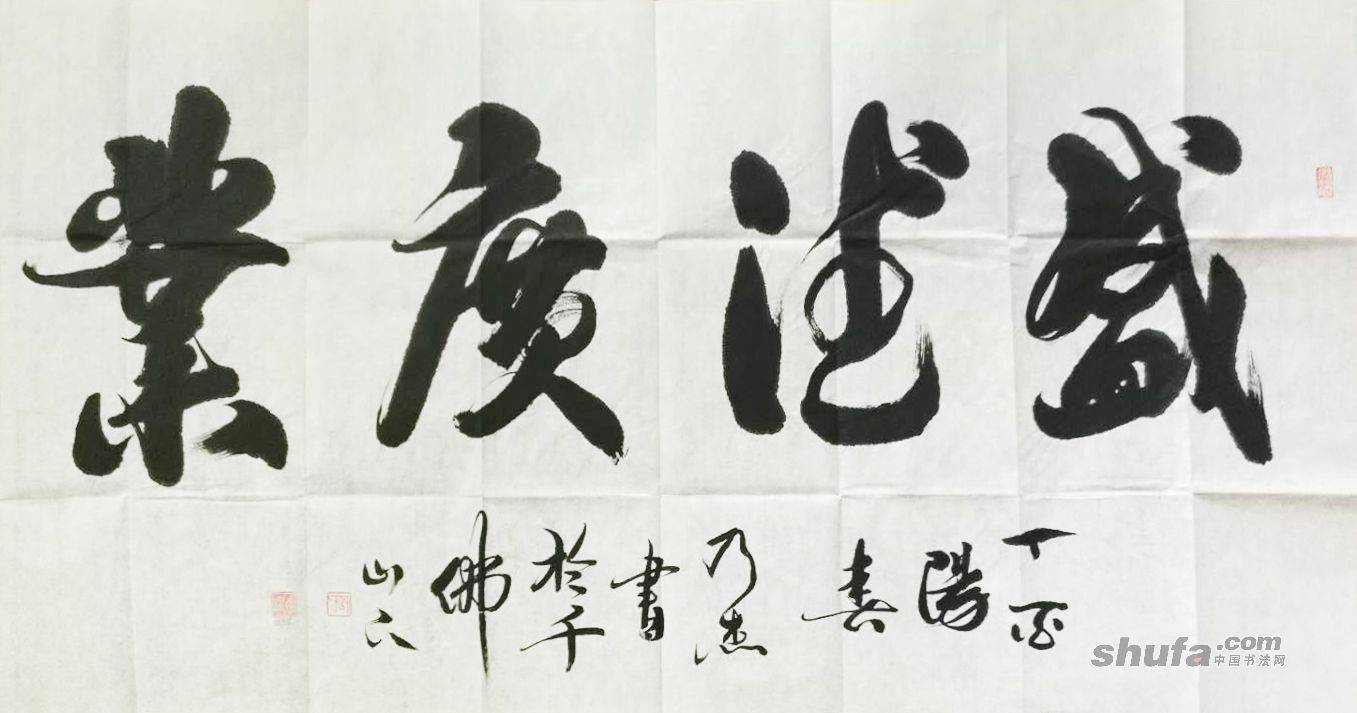 盛德广業
丁酉
陽
春
乃杰
書
於千
佛
山下
shufa.com
中国书法网